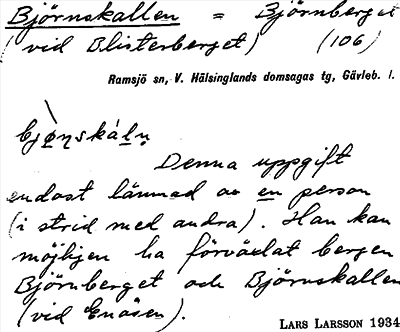 Björnskallen = Björnberget
(vid Blisterberget) (106)
Ramsjö sn, V. Hälsinglands domsagas tg, Gävleb. l.
Denna uppgift
endast lämnad av en person
(i strid med andra). Han kan
möjligen ha förväxlat bergen
Björnberget och Björnskallen
(vid Enåsen).
LARS LARSSON 1934